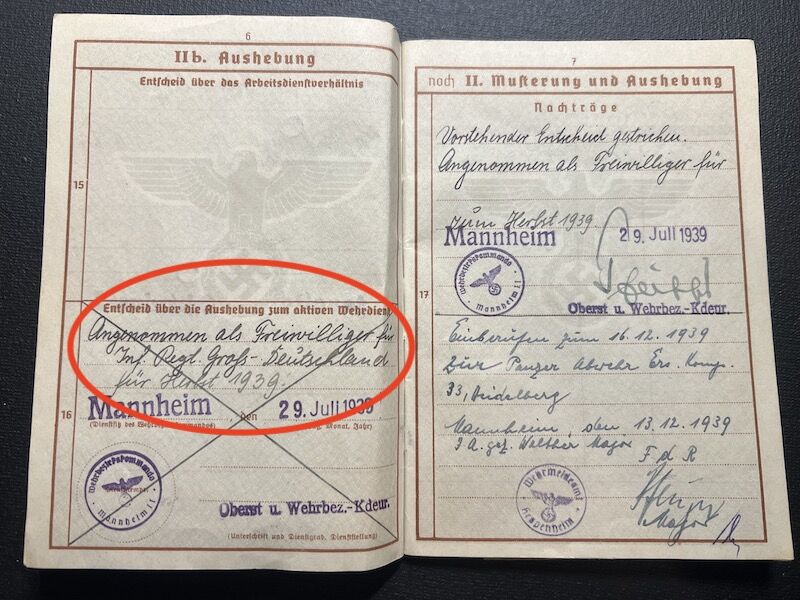 6
IIb. Aushebung
Entscheid über das Arbeitsdienstverhältnis
15
Entscheid über die Aushebung zum aktiven Wehrdienst
Angenommen als Freiwilliger für
Inf. Regt. Groß-Deutschland
für Herbst 1939.
16
Mannheim, den 29. Juli 1939
(Dienstsitz des Wehrbezirkskommandos) (Tag, Monat, Jahr)
Wehrbezirkskommando
Mannheim II
Oberst u. Wehrbez.-Kdeur.
(Unterschrift und Dienstgrad, Dienststellung)
7
noch II. Musterung und Aushebung
Nachträge
Vorstehender Entscheid gestrichen.
Angenommen als Freiwilliger für
zum Herbst 1939.
Mannheim 29. Juli 1939
Wehrbezirkskommando
Mannheim II
17
Oberst u. Wehrbez.-Kdeur.
Einberufen zum 16.12.1939
zur Panzer Abwehr Ers. Komp.
33, Heidelberg
Mannheim, den 13.12.1939
I A. gez. Walther Major
F d R
Wehrmeldeamt
Heppenheim
Major